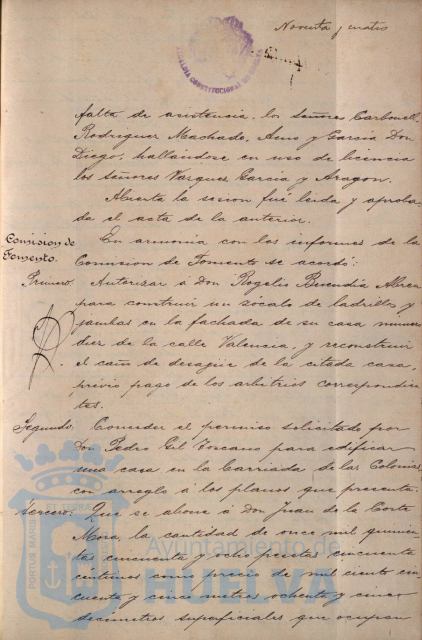 Noventa y cuatro
ALCALDIA CONSTITUCIONAL
falta de asistencia, los señores Carbonell
Rodriguez Machado, Amo y García Don
Diego, hallandose en uso de licencia
los señores Vazquez García y Aragon.
Abierta la sesion fué leida y aproba-
da el acta de la anterior.
Comision de
Fomento.
En armonia con los informes de la
Comision de Fomento se acordó:
Primero. Autorizar á Don Rogelio Buendia Abreu
para construir un zócalo de ladrillos y
jambas en la fachada de su casa numero
diez de la calle Valencia, y reconstruir
el caño de desagüe de la citada casa,
prévio pago de los arbitrios correspondien-
tes.
Segundo. Conceder el permiso solicitado por
Don Pedro Gil Toscano para edificar
una casa en la Barriada de las Colonias
con arreglo á los planos que presenta.
Tercero. Que se abone á Don Juan de la Corte
Mora, la cantidad de once mil quinien-
tas cincuenta y ocho pesetas cincuenta
céntimos como precio de mil ciento cin-
cuenta y cinco metros ochenta y cinco
decimetros superficiales que ocupan
PORTUS MARIS
Ayuntamiento de
HUELVA